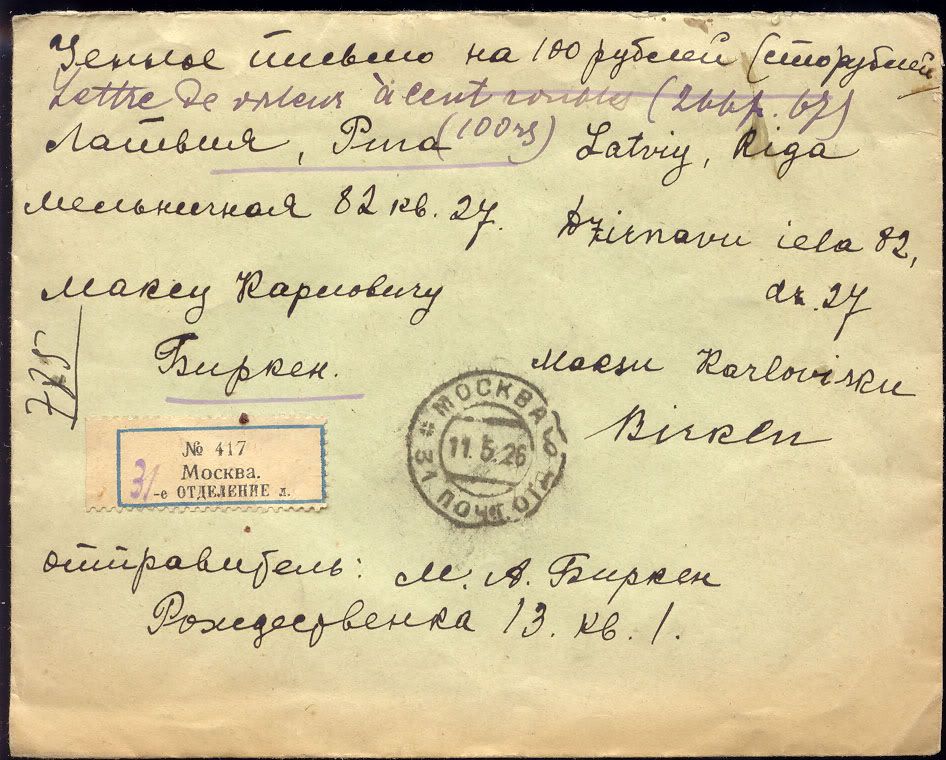 Ценное письмо на 100 рублей (сто рублей)
Lettre de valeur à cent roubles (266f. 67)
(100rs)
Латвия, Рига
Latvij, Riga
Мельничная 82 кв. 27.
Dzirnavu iela 82,
dz. 27
Максу Карловичу
Биркен.
Maksu Karlovičku
Birken
775
№ 417
Москва.
31-е ОТДЕЛЕНИЕ л.
МОСКВА
11.5.26
31 ПОЧТ. ОТ
отправитель: М. А. Биркен
Рождественка 13. кв. 1.